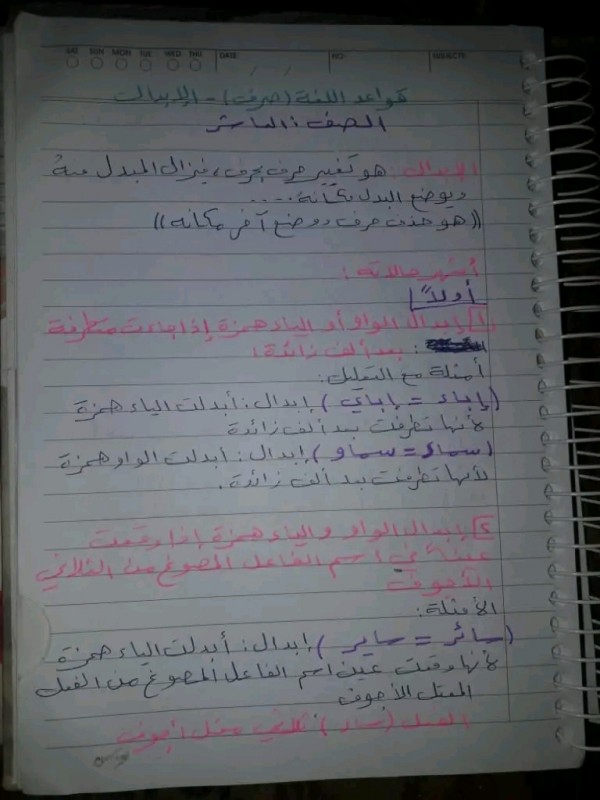 SAT SUN MON TUE WED THU DATE: / / NO: SUBJECT:
قواعد اللغة (صرف) - الإبدال
الصف: العاشر
الإبدال: هو تغيير حرف بحرف، فيزال المبدل منه
ويوضع البدل مكانه....
((هو حذف حرف ووضع آخر مكانه))
أشهر حالاته:
أولاً
1 إبدال الواو أو الياء همزة إذا جاءت متطرفة
: بعد ألف زائدة:
أمثلة مع التعليل:
(إباء = إباي) إبدال: أبدلت الياء همزة
لأنها تطرفت بعد ألف زائدة
(سماء = سماو) إبدال: أبدلت الواو همزة
لأنها تطرفت بعد ألف زائدة.
2 إبدال الواو والياء همزة إذا وقعت
عين اسم الفاعل المصوغ من الثلاثي
الأجوف
الأمثلة:
(سائر = ساير) إبدال: أبدلت الياء همزة
لأنها وقعت عين اسم الفاعل المصوغ من الفعل
المعتل الأجوف
الفعل (سار) ثلاثي معتل أجوف